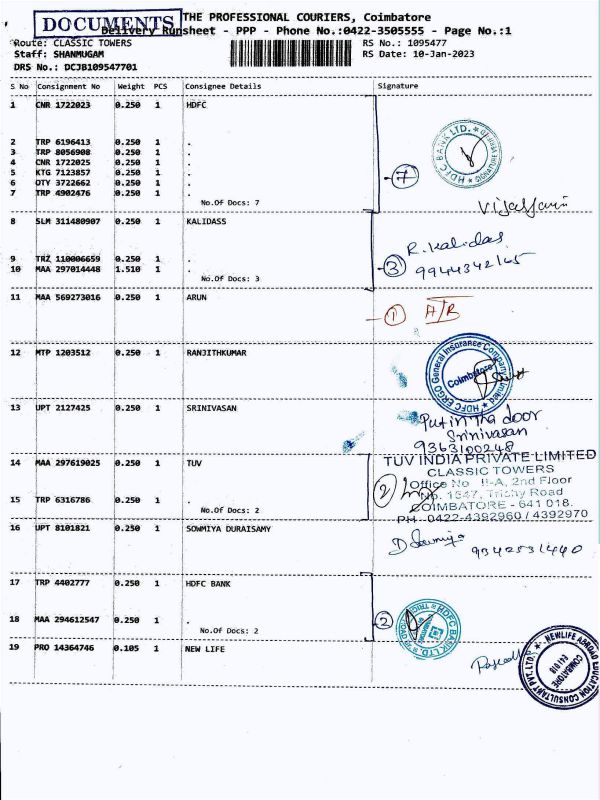 DOCUMENTS
THE PROFESSIONAL COURIERS, Coimbatore
Delivery Runsheet - PPP - Phone No.:0422-3505555 - Page No.:1
Route: CLASSIC TOWERS RS No.: 1095477
Staff: SHANMUGAM RS Date: 10-Jan-2023
DRS No.: DCJB109547701
S No Consignment No Weight PCS Consignee Details Signature
1 CNR 1722023 0.250 1 HDFC
HDFC BANK LTD.
2 TRP 6196413 0.250 1 .
3 TRP 8056908 0.250 1 .
4 CNR 1722025 0.250 1 .
5 KTG 7123857 0.250 1 . 7
6 OTY 3722662 0.250 1 .
7 TRP 4902476 0.250 1 .
No.Of Docs: 7
8 SLM 311480907 0.250 1 KALIDASS
R. Kalidas
9 TRZ 110006659 0.250 1 .
10 MAA 297014448 1.510 1 . 3 9944342145
No.Of Docs: 3
11 MAA 569273016 0.250 1 ARUN
1 A/B
12 MTP 1203512 0.250 1 RANJITHKUMAR
HDFC ERGO General Insurance Company Limited
Coimbatore
13 UPT 2127425 0.250 1 SRINIVASAN
Put in the door
Srinivasan
9363100248
14 MAA 297619025 0.250 1 TUV
TUV INDIA PRIVATE LIMITED
CLASSIC TOWERS
Office No II-A, 2nd Floor
15 TRP 6316786 0.250 1 . 2
No. 1547, Trichy Road
COIMBATORE - 641 018.
No.Of Docs: 2
PH 0422-4392960 / 4392970
16 UPT 8101821 0.250 1 SOWMIYA DURAISAMY
D Sowmiya 9342531440
17 TRP 4402777 0.250 1 HDFC BANK
18 MAA 294612547 0.250 1 . 2
HDFC BANK LTD.
No.Of Docs: 2
19 PRO 14364746 0.105 1 NEW LIFE
NEWLIFE ABROAD EDUCATION CONSULTANT PVT. LTD.
COIMBATORE
641018